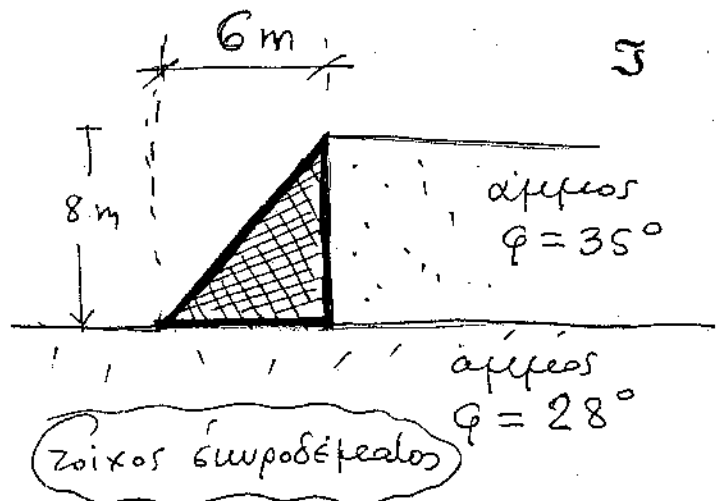 6 m
8 m
άμμος
φ = 35°
άμμος
φ = 28°
τοίχος σκυροδέματος